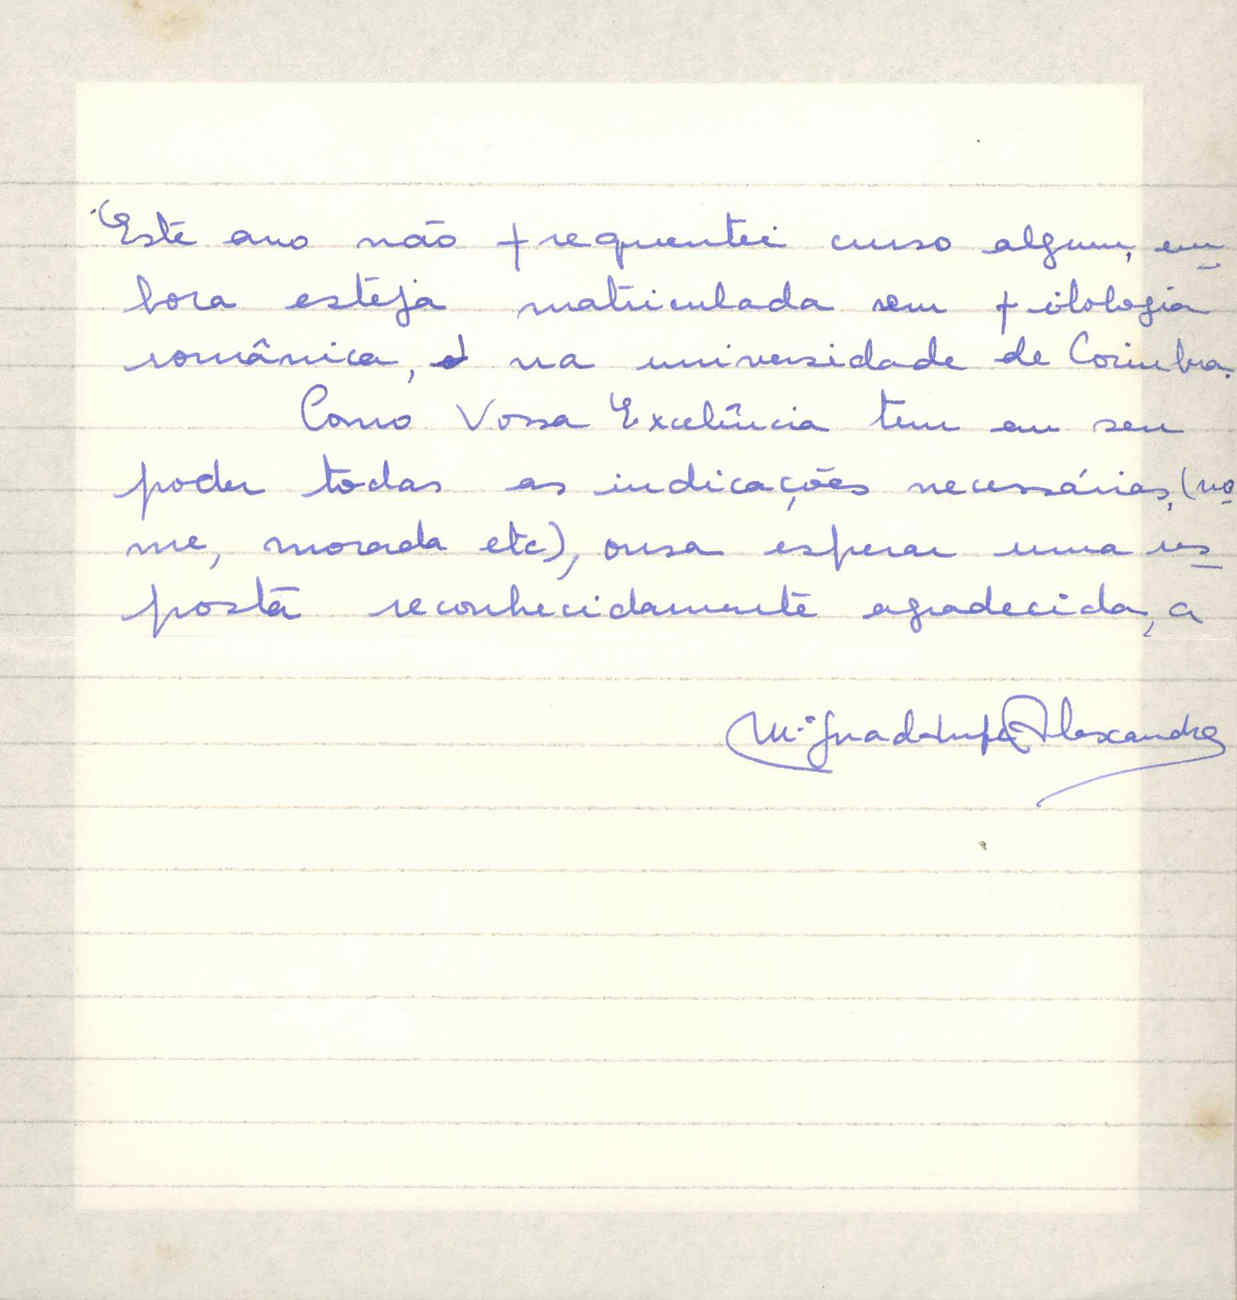 Este ano não frequentei curso algum, em
bora esteja matriculada em filologia
românica, na universidade de Coimbra.
Como Vossa Excelência tem em seu
poder todas as indicações necessárias, (no
me, morada etc), ousa esperar uma res
posta reconhecidamente agradecida, a
Mª Guadalupe Alexandre